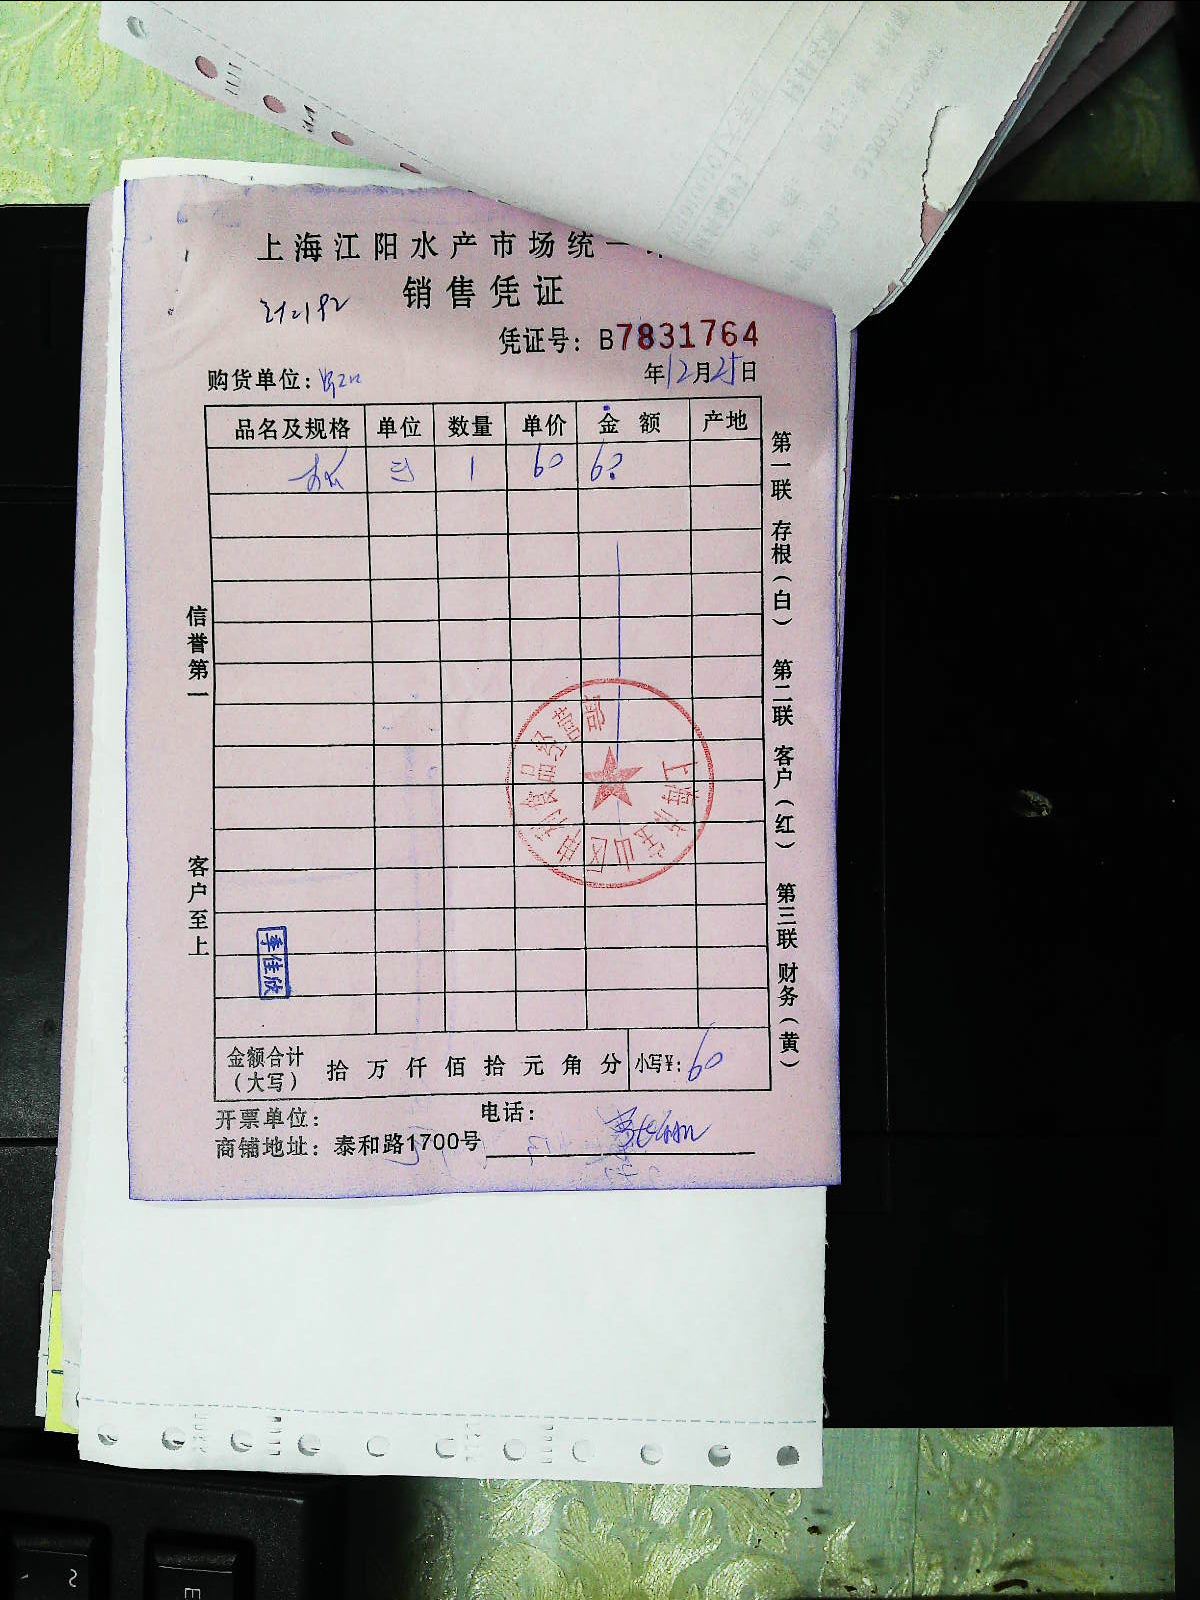 上海江阳水产市场统一
销售凭证
凭证号：B7831764
购货单位：
年12月25日
品名及规格 单位 数量 单价 金额 产地
1 60 60
信誉第一
客户至上
第一联 存根（白） 第二联 客户（红） 第三联 财务（黄）
季佳欣
金额合计（大写） 拾 万 仟 佰 拾 元 角 分 小写¥：60
开票单位： 电话：
商铺地址：泰和路1700号